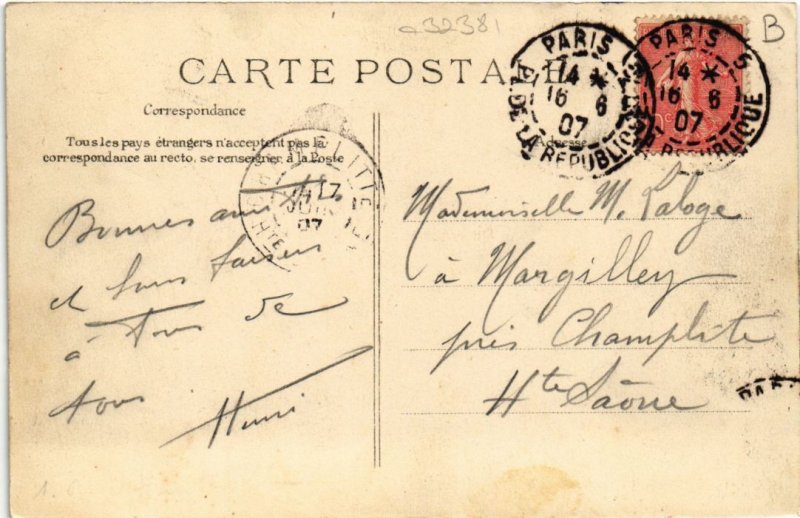 a32381
B
CARTE POSTALE
Correspondance
Tous les pays étrangers n'acceptent pas la
correspondance au recto, se renseigner à la Poste
Adresse
PARIS
14 *
16 6
07
PL. DE LA REPUBLIQUE
PARIS 5
14 *
16 6
07
REPUBLIQUE
17
JUIN
07
Hte
Bonnes amitiés
et bons baisers
à Tous de
tous
Henri
Mademoiselle M. Laloge
à Margilley
près Champlitte
Hte Saône